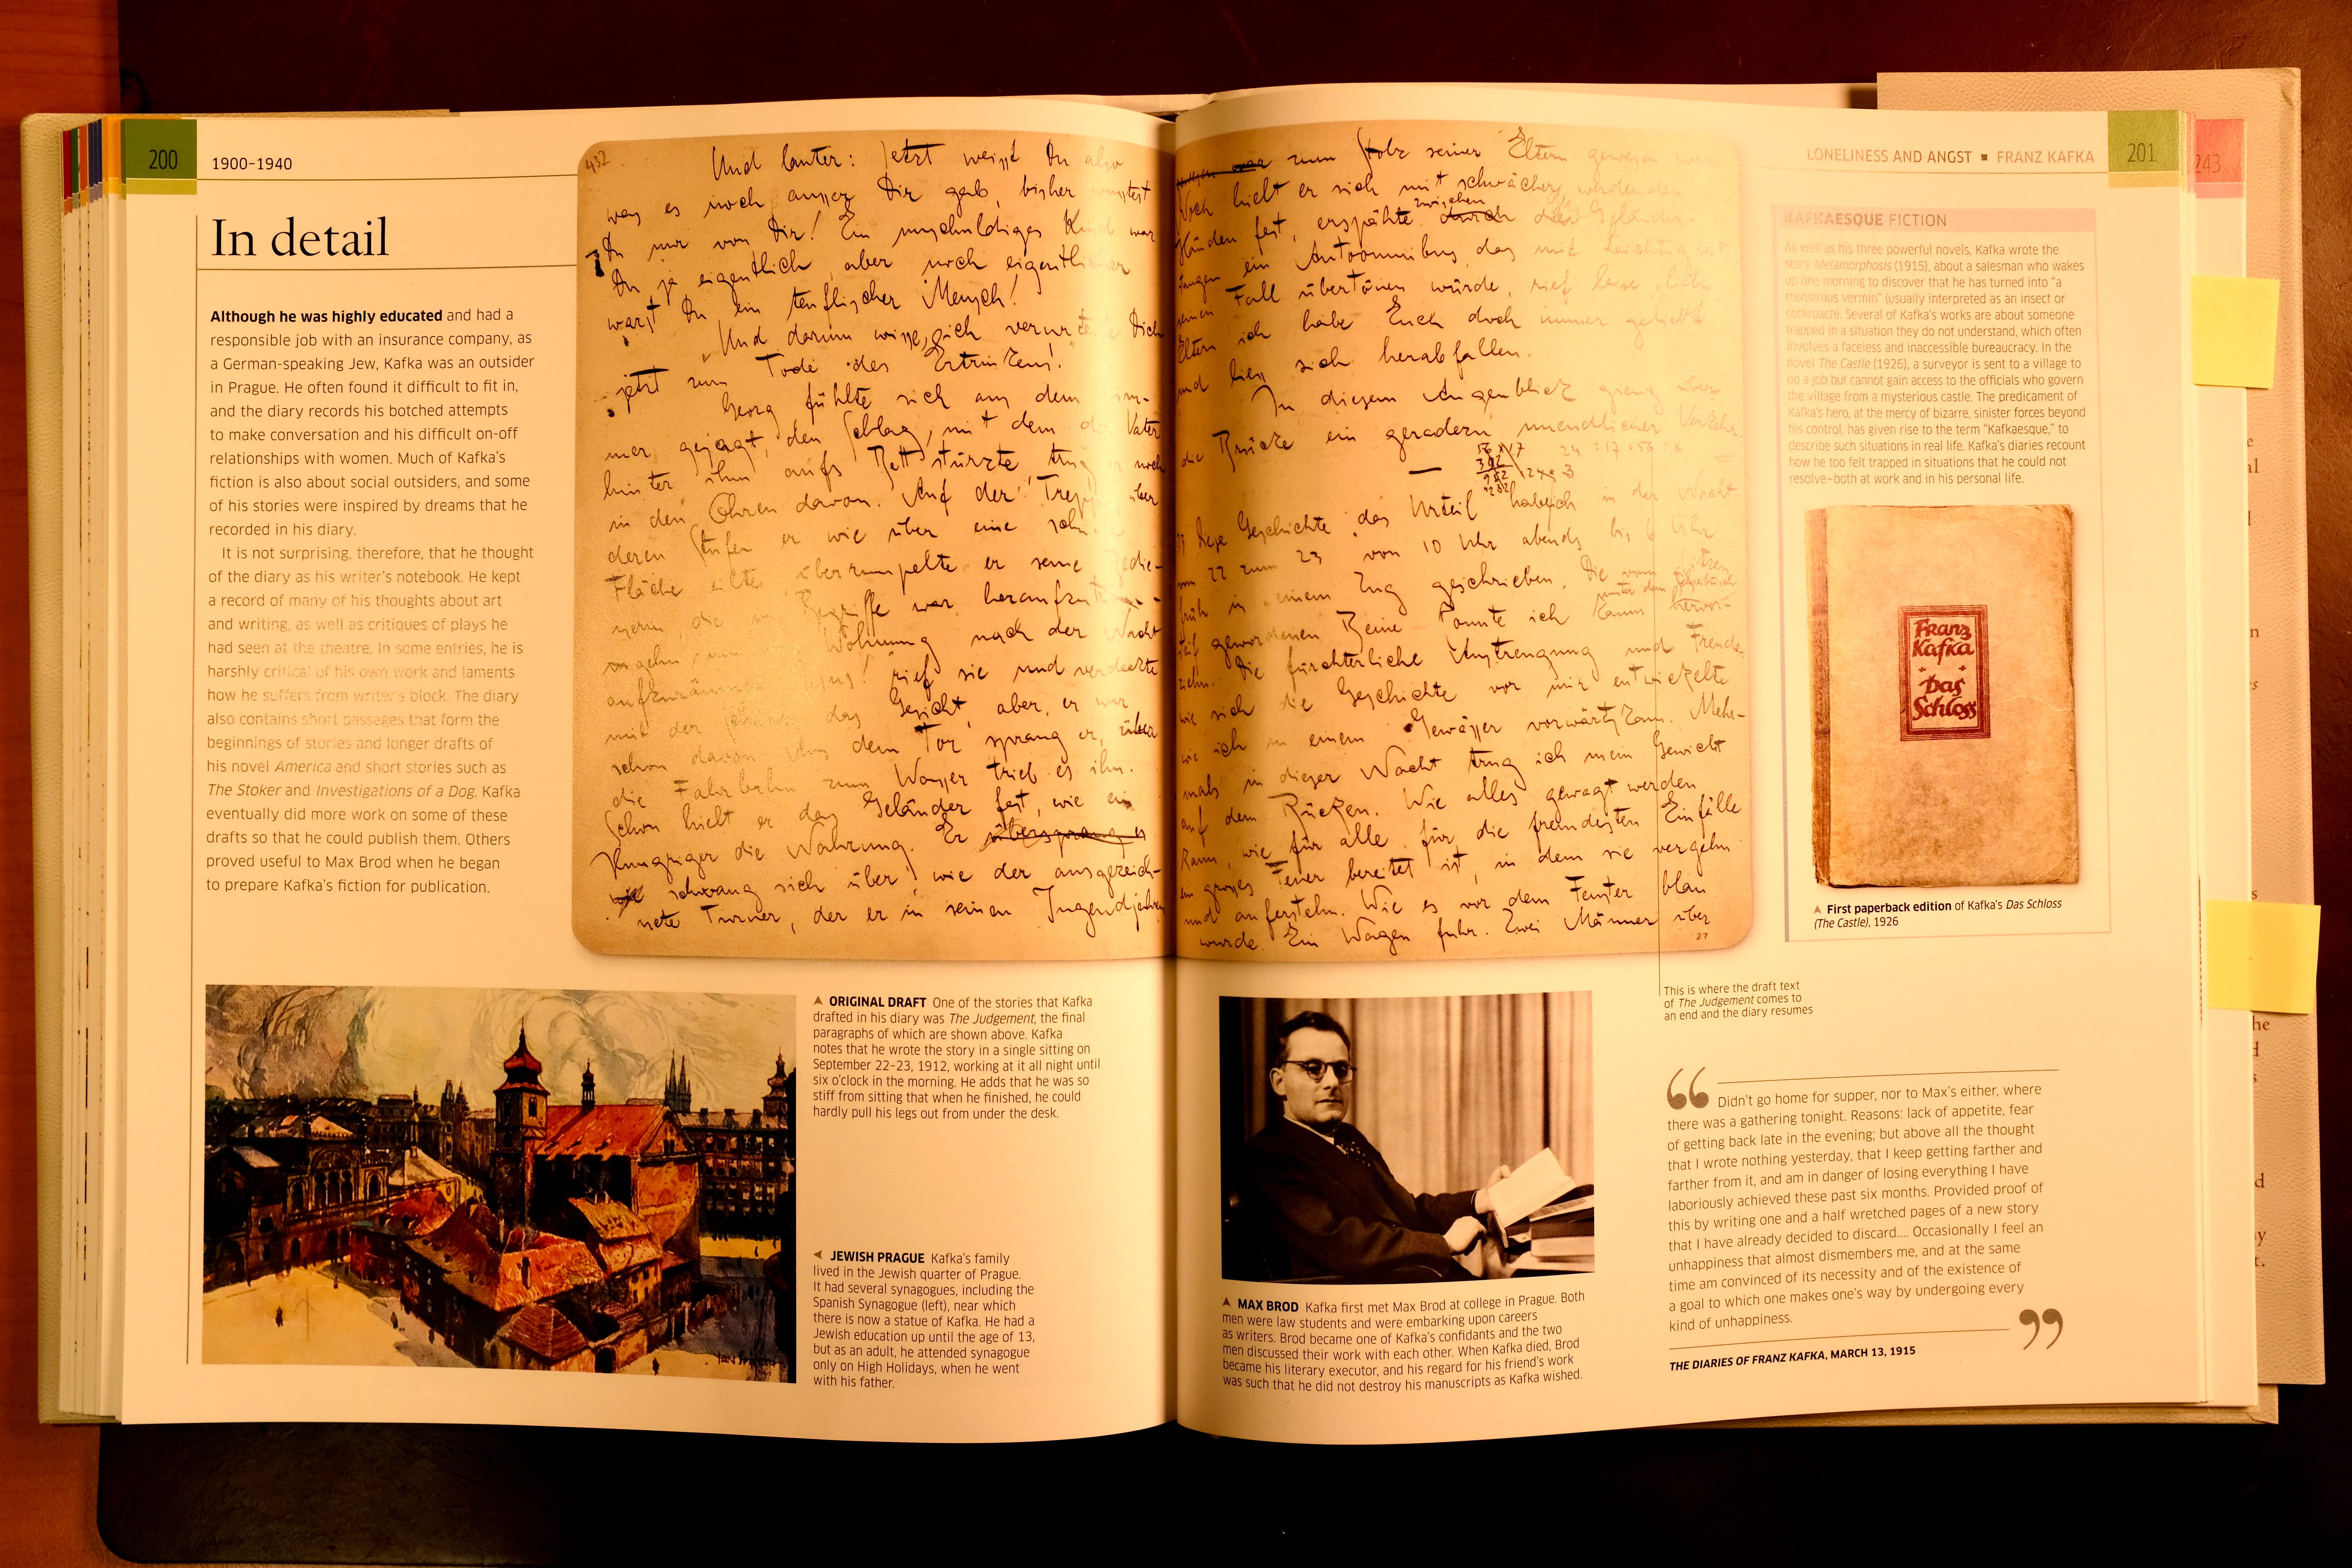 200
1900–1940
In detail
Although he was highly educated and had a
responsible job with an insurance company, as
a German-speaking Jew, Kafka was an outsider
in Prague. He often found it difficult to fit in,
and the diary records his botched attempts
to make conversation and his difficult on-off
relationships with women. Much of Kafka's
fiction is also about social outsiders, and some
of his stories were inspired by dreams that he
recorded in his diary.
It is not surprising, therefore, that he thought
of the diary as his writer's notebook. He kept
a record of many of his thoughts about art
and writing, as well as critiques of plays he
had seen at the theatre. In some entries, he is
harshly critical of his own work and laments
how he suffers from writer's block. The diary
also contains short passages that form the
beginnings of stories and longer drafts of
his novel America and short stories such as
The Stoker and Investigations of a Dog. Kafka
eventually did more work on some of these
drafts so that he could publish them. Others
proved useful to Max Brod when he began
to prepare Kafka's fiction for publication.
432
Und lauter: Jetzt weißt Du also
was es noch außer Dir gab, bisher wußtest
Du nur von Dir! Ein unschuldiges Kind war
Du ja eigentlich, aber noch eigentlicher
warst Du ein teuflischer Mensch!
Und darum wisse, ich verurteile Dich
jetzt zum Tode des Ertrinkens!
Georg fühlte sich aus dem Zim-
mer gejagt, den Schlag, mit dem der Vater
hinter ihm aufs Bett stürzte trug er noch
in den Ohren davon. Auf der Treppe über
deren Stufen er wie über eine
Fläche eilte, überrumpelte er seine Bedie-
nerin die im Begriffe war heraufzu
Wohnung nach der Nacht
rief sie und verdeckte
mit der das Gesicht, aber, er war
schon davon. Aus dem Tor sprang er, über
die Fahrbahn zum Wasser trieb es ihn.
Schon hielt er das Geländer fest, wie ein
Hungriger die Nahrung. Er übersprang es
schwang sich über, wie der ausgezeich-
nete Turner, der er in seinen Jugendjahren
war zum Stolz seiner Eltern gewesen war
Noch hielt er sich mit schwächer werdenden
Händen fest, erspähte durch zwischen den Geländer-
stangen ein Autoomnibus, das mit Leichtigkeit
seinen Fall übertönen würde, rief leise: liebe
Eltern ich habe Euch doch immer geliebt
und ließ sich herabfallen.
In diesem Augenblick gieng über
die Brücke ein geradezu unendlicher Verkehr.
23 Diese Geschichte „das Urteil" habe ich in der Nacht
vom 22 zum 23 von 10 Uhr abends bis 6 Uhr
früh in einem Zug geschrieben. Die vom Sitzen
steif gewordenen Beine konnte ich kaum unter dem Schreibtisch hervor-
ziehn. Die fürchterliche Anstrengung und Freude,
wie sich die Geschichte vor mir entwickelte
wie ich in einem Gewässer vorwärtskam. Mehr-
mals in dieser Nacht trug ich mein Gewicht
auf dem Rücken. Wie alles gewagt werden
kann, wie für alle, für die fremdesten Einfälle
ein großes Feuer bereitet ist, in dem sie vergehn
und auferstehn. Wie es vor dem Fenster blau
wurde. Ein Wagen fuhr. Zwei Männer über
27
ORIGINAL DRAFT One of the stories that Kafka
drafted in his diary was The Judgement, the final
paragraphs of which are shown above. Kafka
notes that he wrote the story in a single sitting on
September 22–23, 1912, working at it all night until
six o'clock in the morning. He adds that he was so
stiff from sitting that when he finished, he could
hardly pull his legs out from under the desk.
JEWISH PRAGUE Kafka's family
lived in the Jewish quarter of Prague.
It had several synagogues, including the
Spanish Synagogue (left), near which
there is now a statue of Kafka. He had a
Jewish education up until the age of 13,
but as an adult, he attended synagogue
only on High Holidays, when he went
with his father.
MAX BROD Kafka first met Max Brod at college in Prague. Both
men were law students and were embarking upon careers
as writers. Brod became one of Kafka's confidants and the two
men discussed their work with each other. When Kafka died, Brod
became his literary executor, and his regard for his friend's work
was such that he did not destroy his manuscripts as Kafka wished.
LONELINESS AND ANGST ■ FRANZ KAFKA
201
243
KAFKAESQUE FICTION
As well as his three powerful novels, Kafka wrote the
story Metamorphosis (1915), about a salesman who wakes
up one morning to discover that he has turned into "a
monstrous vermin" (usually interpreted as an insect or
cockroach). Several of Kafka's works are about someone
trapped in a situation they do not understand, which often
involves a faceless and inaccessible bureaucracy. In the
novel The Castle (1926), a surveyor is sent to a village to
do a job but cannot gain access to the officials who govern
the village from a mysterious castle. The predicament of
Kafka's hero, at the mercy of bizarre, sinister forces beyond
his control, has given rise to the term "Kafkaesque," to
describe such situations in real life. Kafka's diaries recount
how he too felt trapped in situations that he could not
resolve–both at work and in his personal life.
Franz
Kafka
Das
Schloss
First paperback edition of Kafka's Das Schloss
(The Castle), 1926
This is where the draft text
of The Judgement comes to
an end and the diary resumes
“ Didn't go home for supper, nor to Max's either, where
there was a gathering tonight. Reasons: lack of appetite, fear
of getting back late in the evening; but above all the thought
that I wrote nothing yesterday, that I keep getting farther and
farther from it, and am in danger of losing everything I have
laboriously achieved these past six months. Provided proof of
this by writing one and a half wretched pages of a new story
that I have already decided to discard.... Occasionally I feel an
unhappiness that almost dismembers me, and at the same
time am convinced of its necessity and of the existence of
a goal to which one makes one's way by undergoing every
kind of unhappiness. ”
THE DIARIES OF FRANZ KAFKA, MARCH 13, 1915